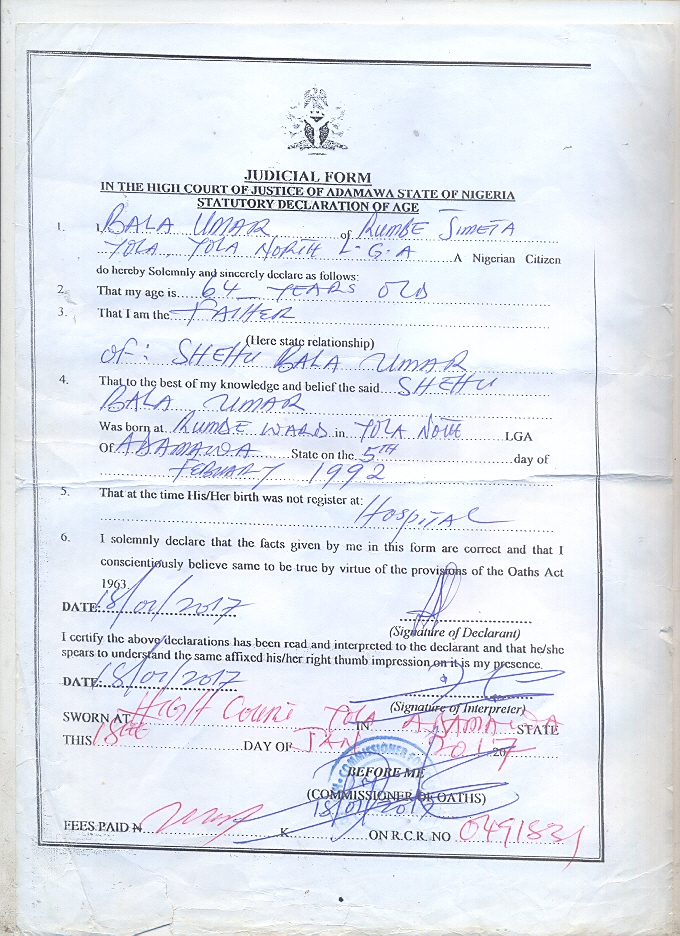 JUDICIAL FORM
IN THE HIGH COURT OF JUSTICE OF ADAMAWA STATE OF NIGERIA
STATUTORY DECLARATION OF AGE
1. I, BALA UMAR of RUMBE JIMETA
YOLA, YOLA NORTH L-G-A A Nigerian Citizen
do hereby Solemnly and sincerely declare as follows:
2. That my age is 64 YEARS OLD
3. That I am the FATHER
(Here state relationship)
OF: SHEHU BALA UMAR
4. That to the best of my knowledge and belief the said SHEHU
BALA UMAR
Was born at RUMDE WARD in YOLA LGA
Of ADAMAWA State on the 5TH day of
FEBUARY 1992
5. That at the time His/Her birth was not register at:
HOSPITAL
6. I solemnly declare that the facts given by me in this form are correct and that I
conscientiously believe same to be true by virtue of the provisions of the Oaths Act
1963.
DATE: 18/01/2017
(Signature of Declarant)
I certify the above declarations has been read and interpreted to the declarant and that he/she
spears to understand the same affixed his/her right thumb impression on it is my presence.
DATE: 18/01/2017
(Signature of Interpreter)
SWORN AT HIGH COURT YOLA IN ADAMAWA STATE
THIS DAY OF JAN 2017 20
COMMISSIONER FO
BEFORE ME
(COMMISSIONER OF OATHS)
18/01/2017
FEES PAID N K ON R.C.R. NO